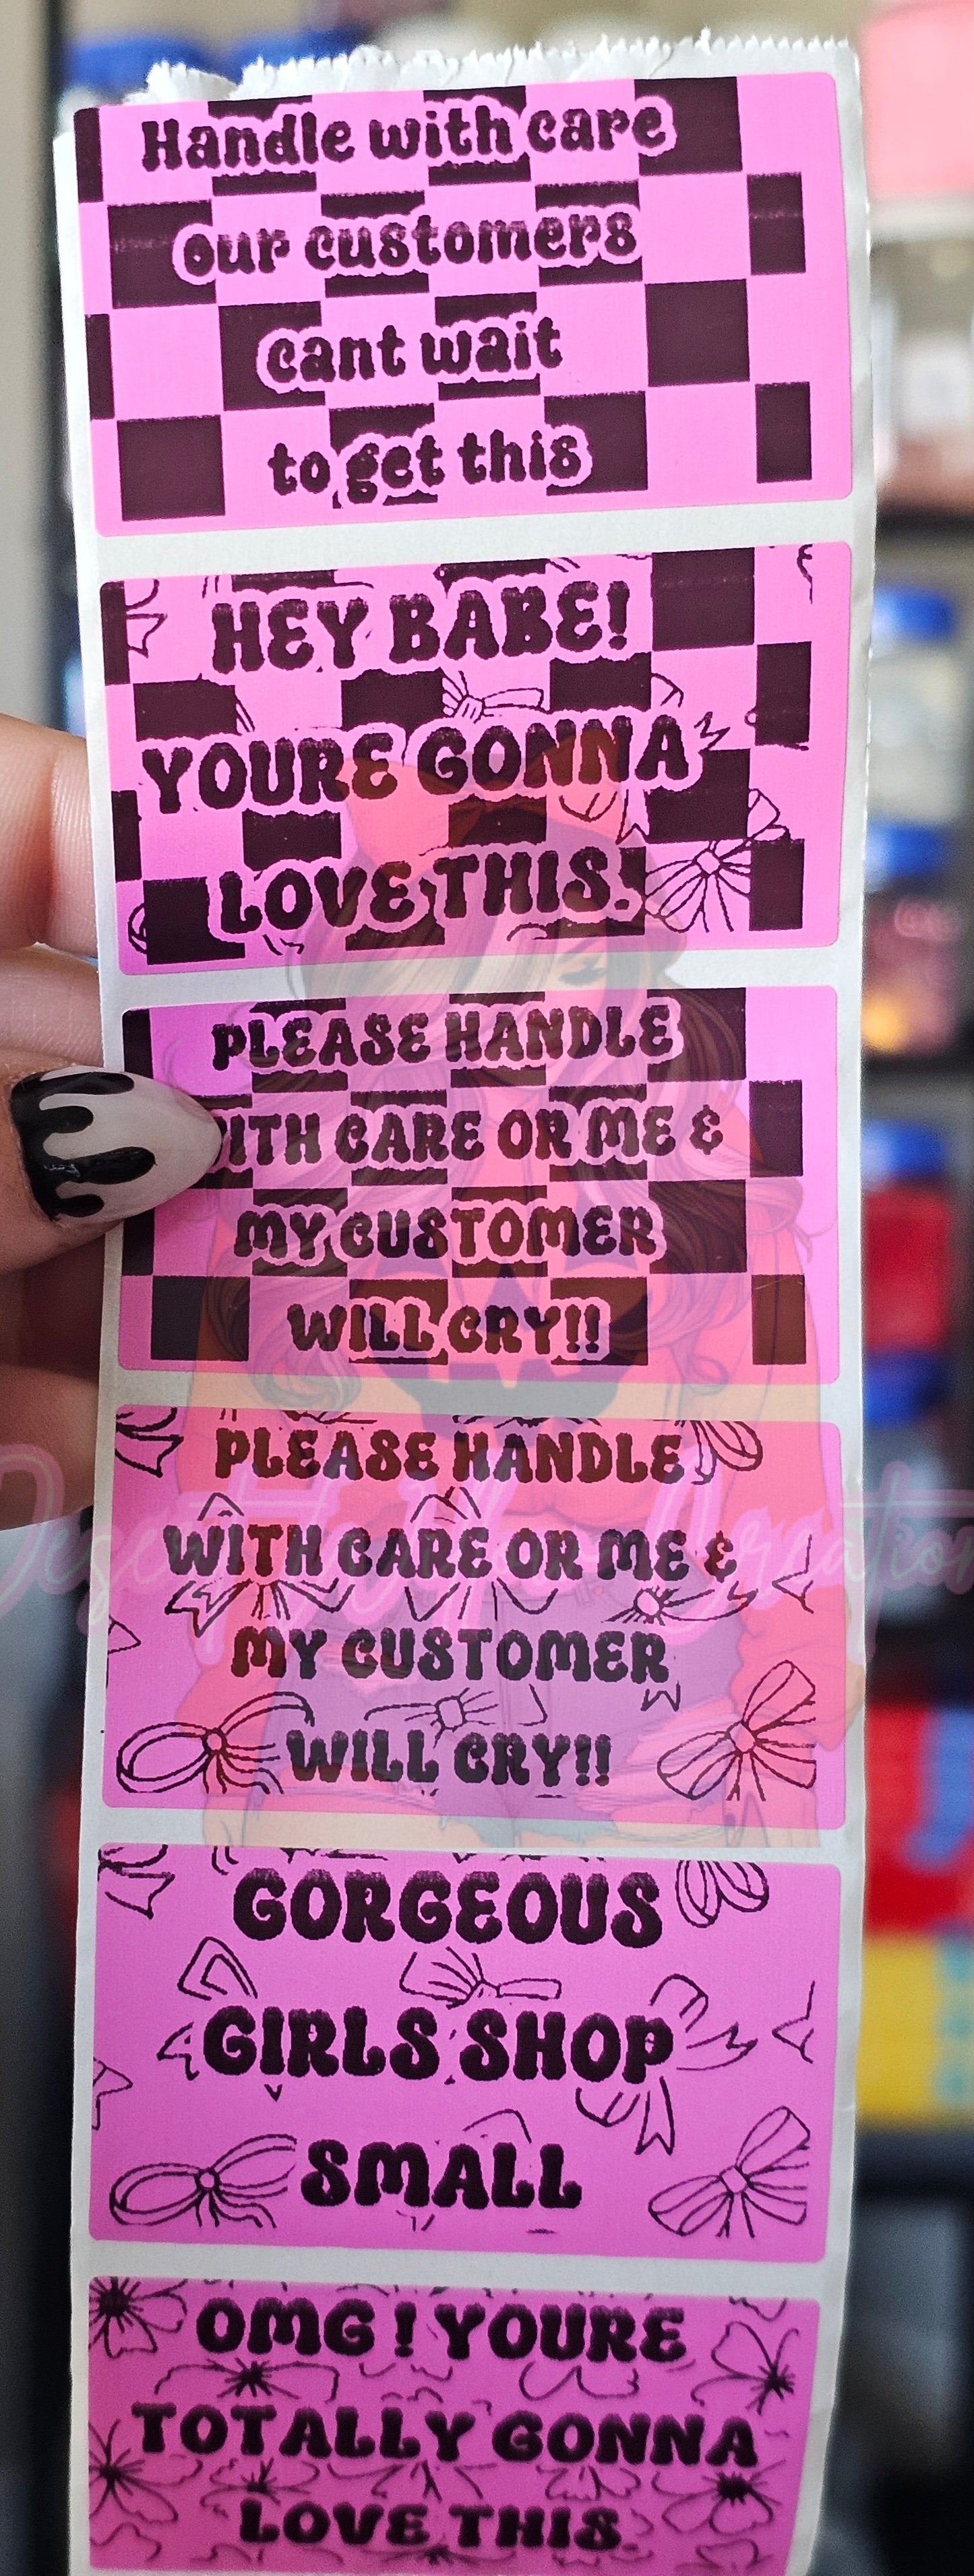 Handle with care
our customers
cant wait
to get this
HEY BABE!
YOURE GONNA
LOVE THIS.
PLEASE HANDLE
WITH CARE OR ME &
MY CUSTOMER
WILL CRY!!
PLEASE HANDLE
WITH CARE OR ME &
MY CUSTOMER
WILL CRY!!
GORGEOUS
GIRLS SHOP
SMALL
OMG! YOURE
TOTALLY GONNA
LOVE THIS